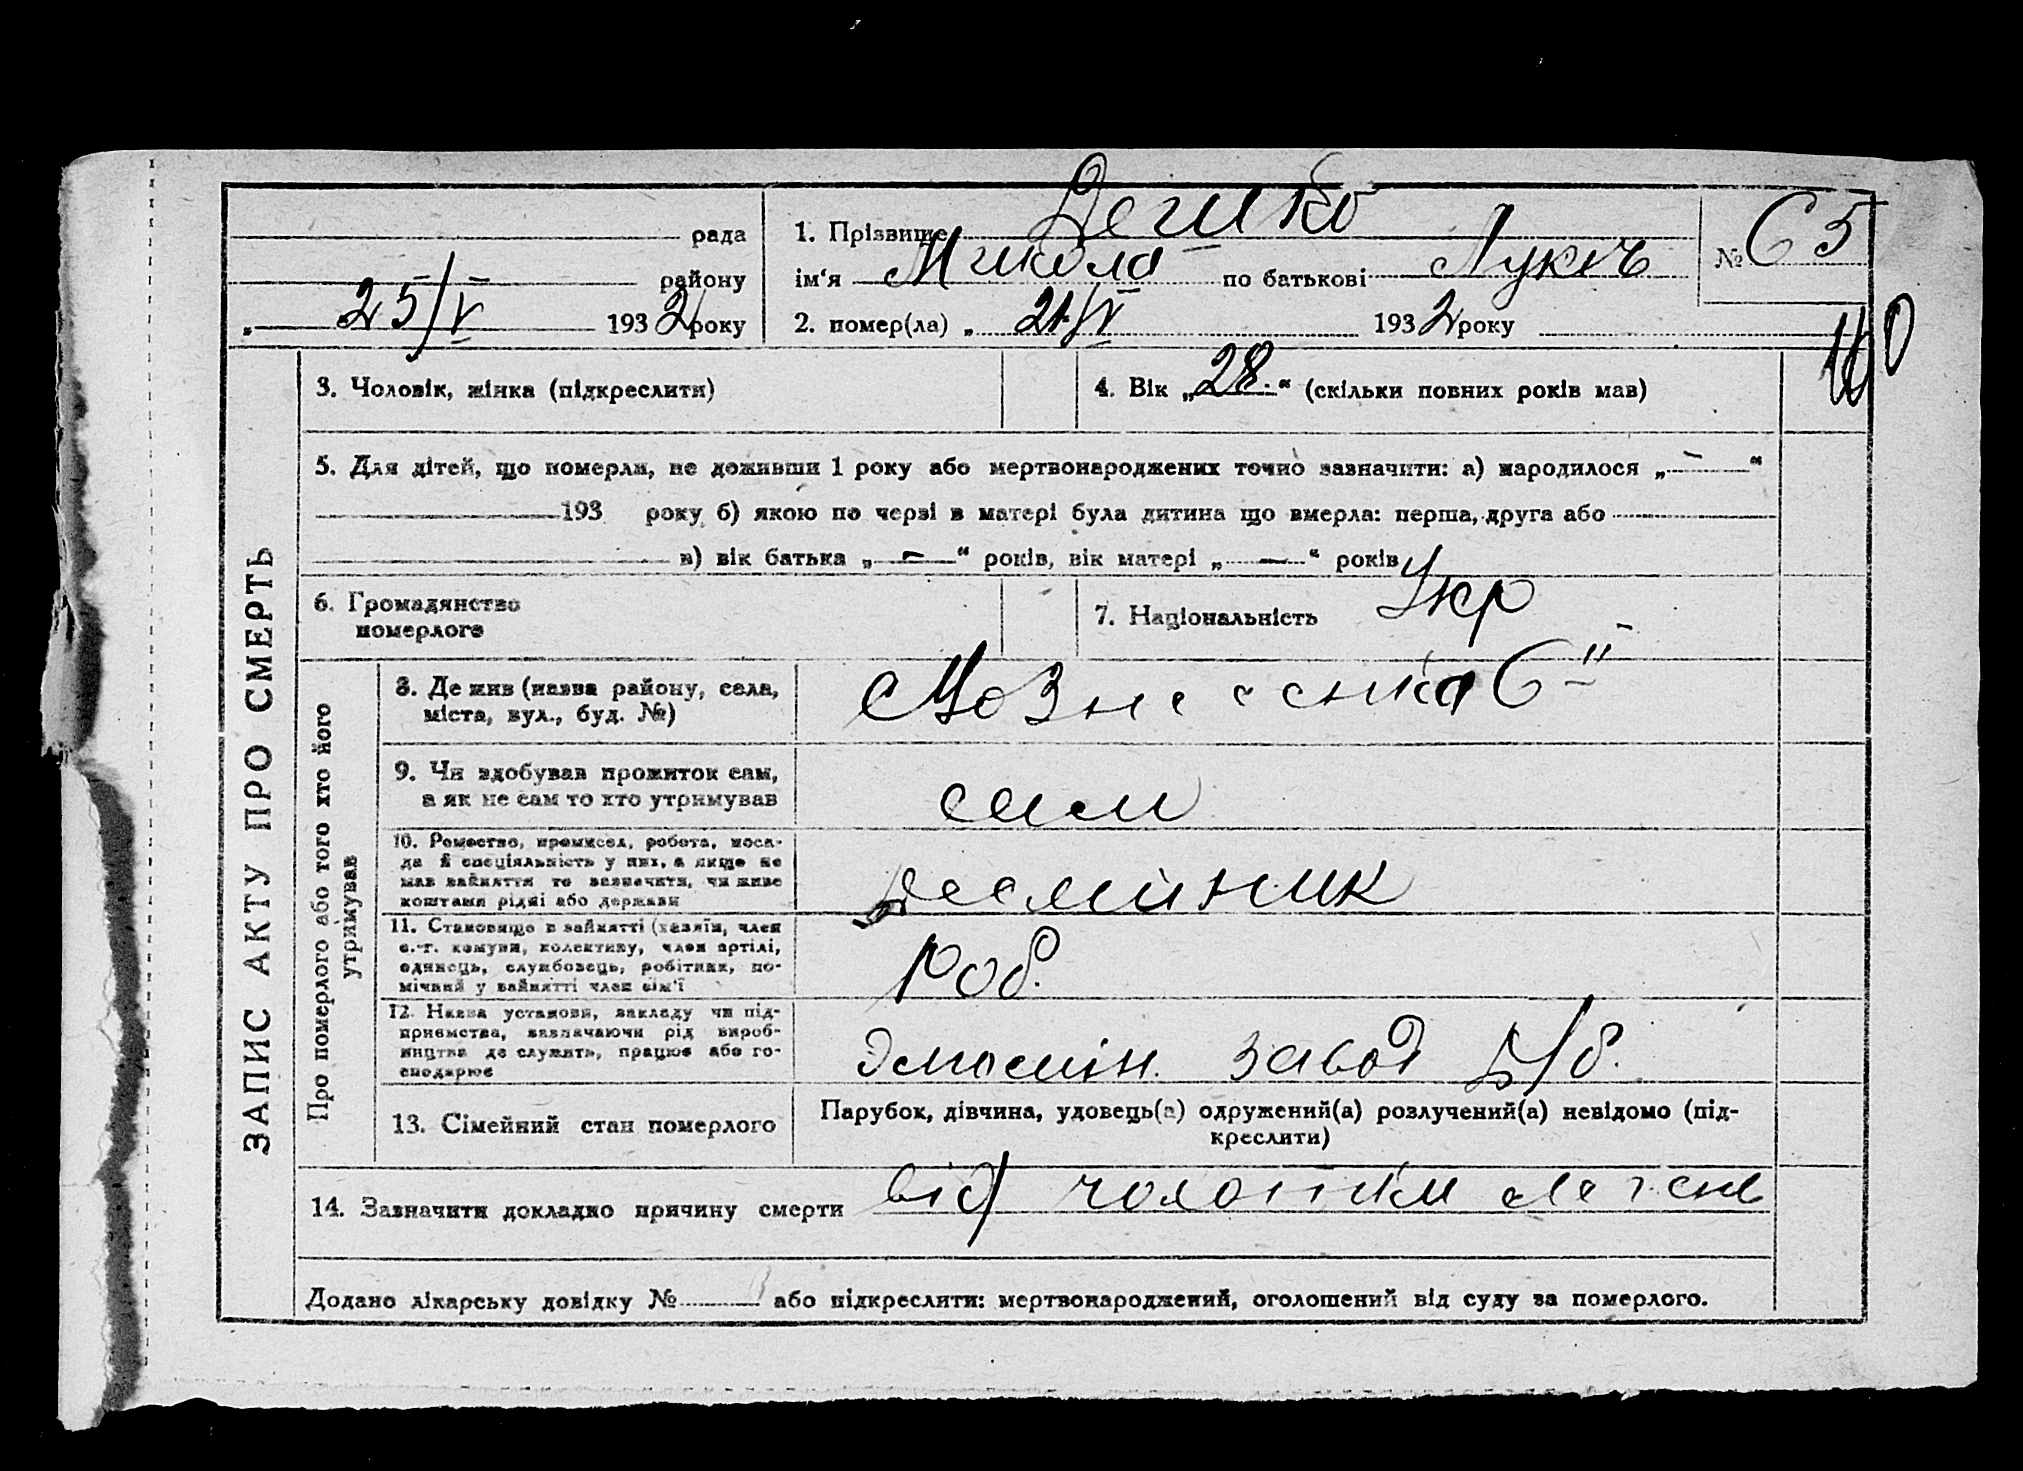 рада
1. Прізвище
№ 65
району
ім'я Микола по батькові Лукич
" 25/V 1932 року
2. помер(ла) " 21/V 1932 року
160
ЗАПИС АКТУ ПРО СМЕРТЬ
3. Чоловік, жінка (підкреслити)
4. Вік „28.“ (скільки повних років мав)
5. Для дітей, що померли, не доживши 1 року або мертвонароджених точно зазначити: а) народилося „—“
193 року б) якою по черзі в матері була дитина що вмерла: перша, друга або
в) вік батька „—“ років, вік матері „—“ років
6. Громадянство
померлого
7. Національність Укр
Про померлого або того хто його
утримував
8. Де жив (назва району, села,
міста, вул., буд. №)
9. Чи здобував прожиток сам,
а як не сам то хто утримував
сам
10. Ремество, промисел, робота, поса-
да й спеціяльність у них, а якщо не
мав заняття то зазначити, чи живе
коштами рідні або держави
11. Становище в занятті (хазяїн, член
с.-г. комуни, колективу, член артілі,
одинець, службовець, робітник, по-
мічний у занятті член сім'ї
Роб.
12. Назва установи, закладу чи під-
приємства, зазначаючи рід вироб-
ництва де служить, працює або го-
сподарює
завод
13. Сімейний стан померлого
Парубок, дівчина, удовець(а) одружений(а) розлучений(а) невідомо (під-
креслити)
14. Зазначити докладно причину смерти від легень
Додано лікарську довідку № або підкреслити: мертвонароджений, оголошений від суду за померлого.